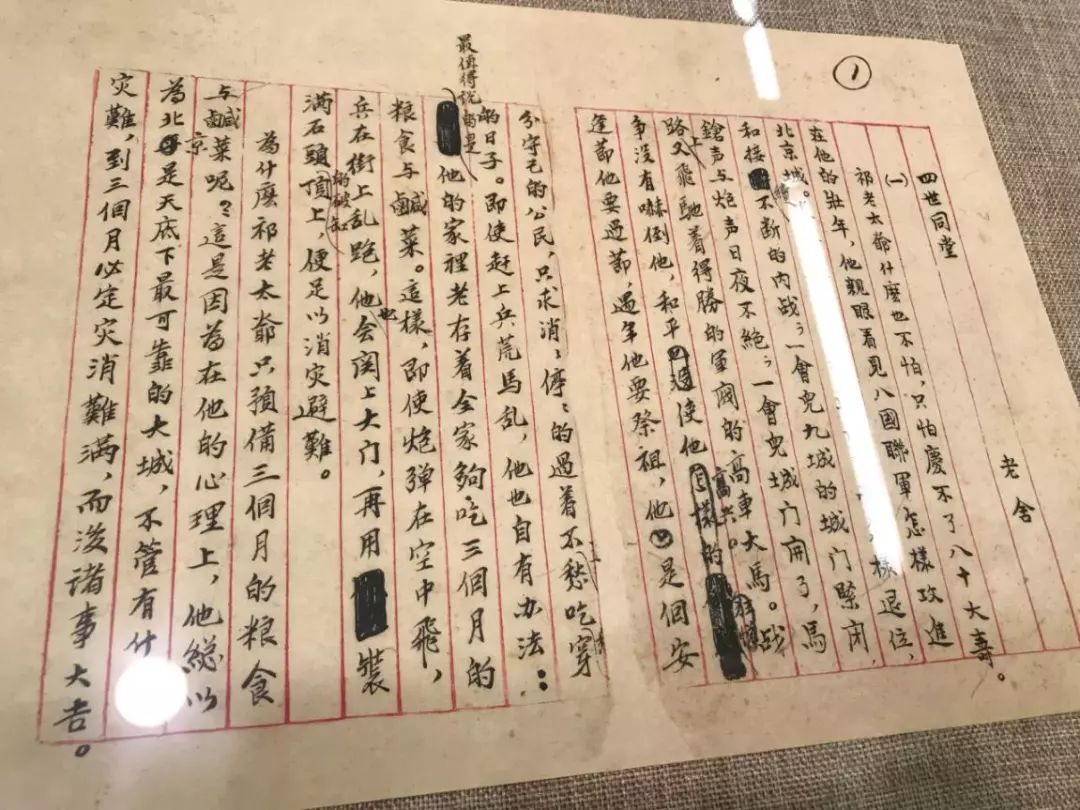 ①
四世同堂
老舍
(一)
祁老太爺什麼也不怕，只怕慶不了八十大寿。
在他的壯年，他親眼看見八國聯軍怎樣攻進
北京城。樣退位，
和接續不断的内战；一會兒九城的城门緊闭，
鎗声与炮声日夜不絕；一會兒城门開了，馬
路上又飛馳着得勝的軍阀的高車大馬。战
争没有嚇倒他，和平使他高兴。
逢節他要過節，遇年他要祭祖，他是個安
分守己的公民，只求消、停、的過着不愁吃穿
的日子。即使赶上兵荒馬乱，他也自有办法：
最值得説的是他的家裡老存着全家夠吃三個月的
粮食与鹹菜。這樣，即使炮弹在空中飛，
兵在街上乱跑，他也会関上大门，再用装
满石頭的破缸頂上，便足以消灾避難。
為什麼祁老太爺只預備三個月的粮食
与鹹菜呢？這是因為在他的心理上，他総以
為北京是天底下最可靠的大城，不管有什
灾難，到三個月必定灾消難满，而後諸事大吉。